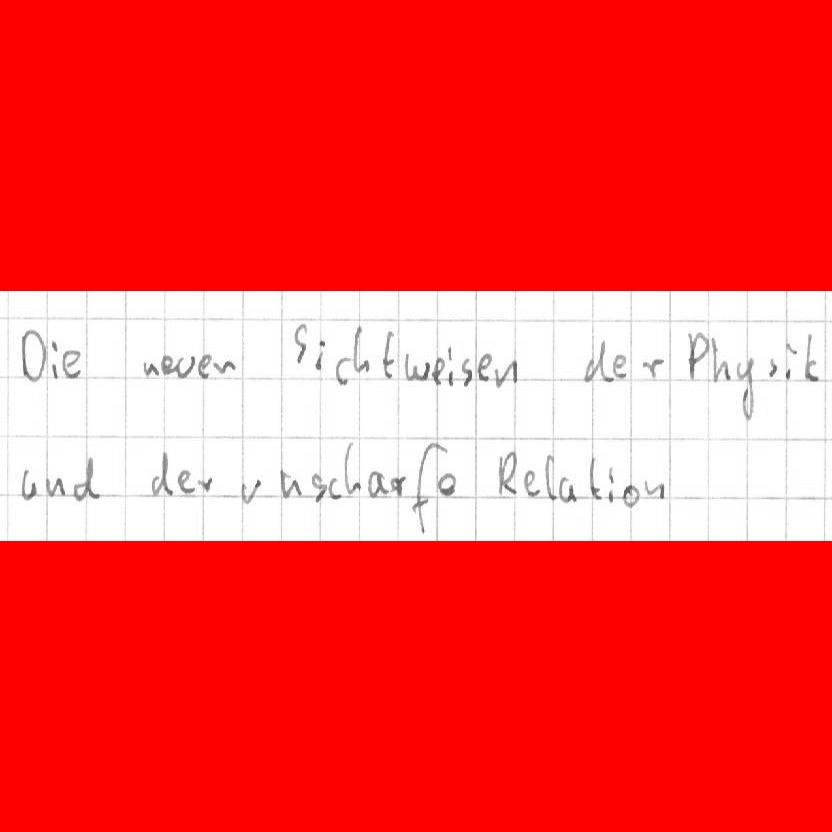 Die neuen Sichtweisen der Physik
und der unscharfe Relation